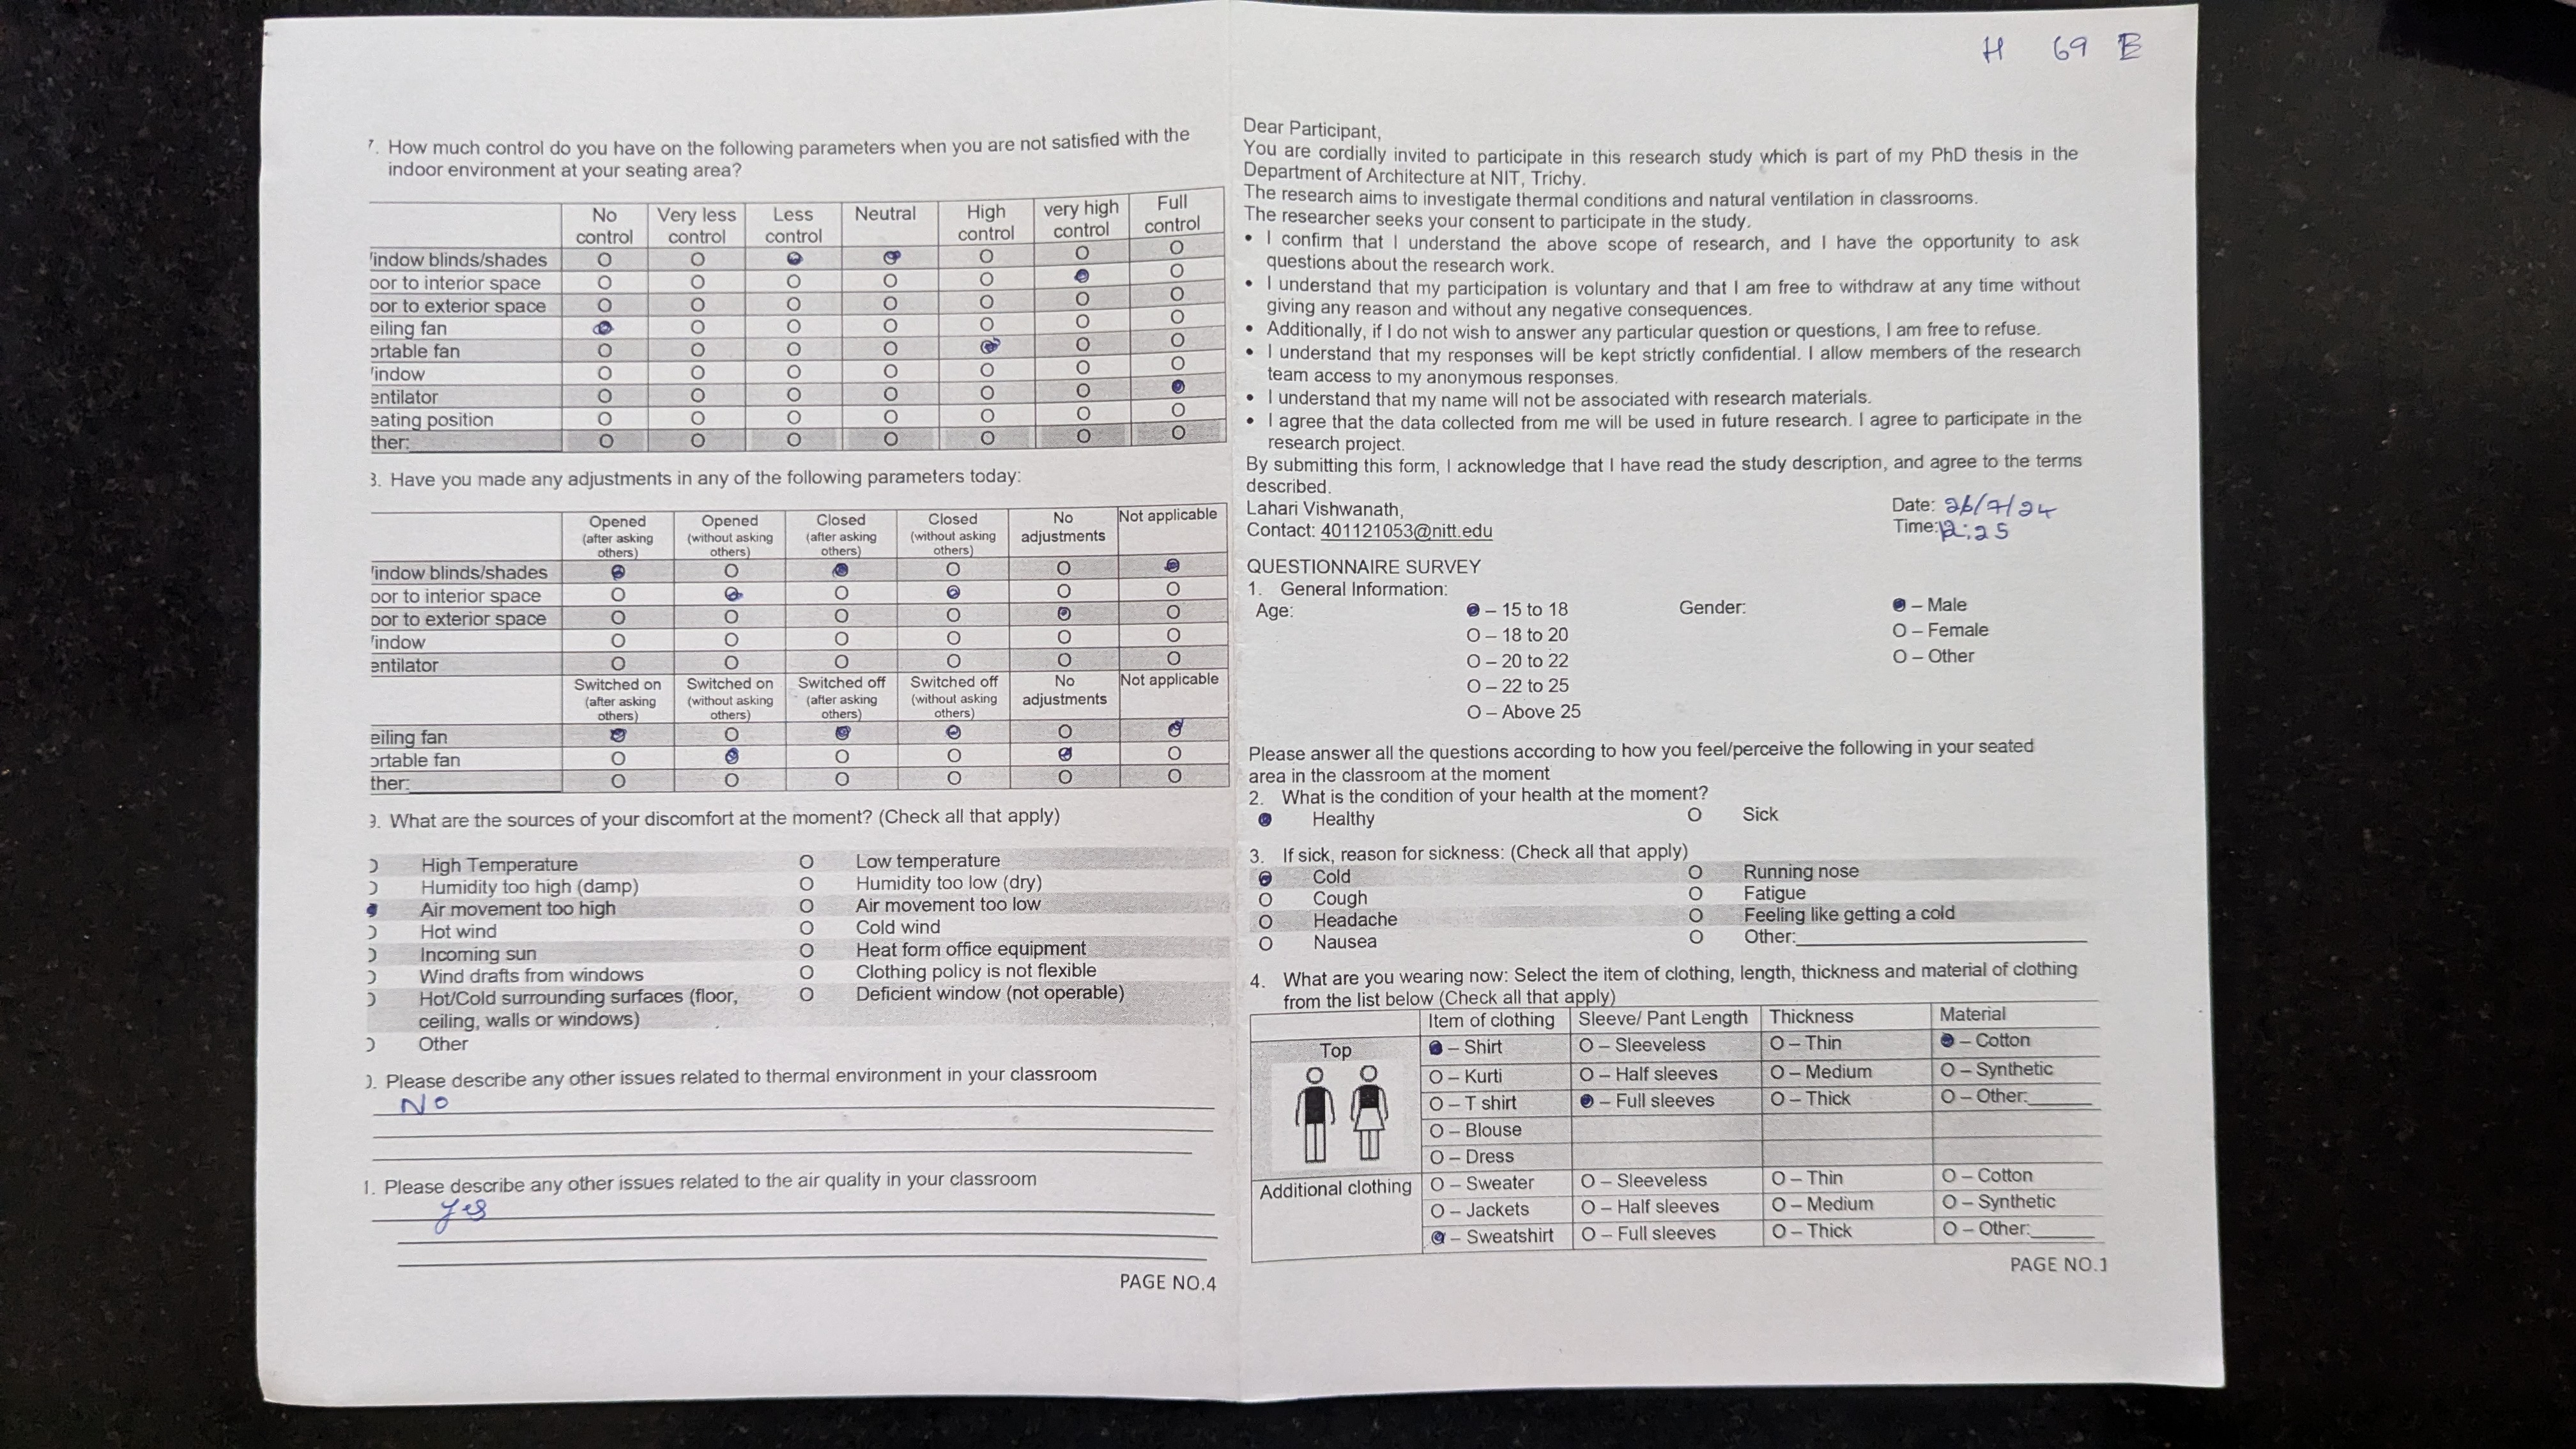 7. How much control do you have on the following parameters when you are not satisfied with the
indoor environment at your seating area?
No control Very less control Less control Neutral High control very high control Full control
indow blinds/shades O O ● ● O O O
oor to interior space O O O O O ● O
oor to exterior space O O O O O O O
eiling fan ● O O O O O O
ortable fan O O O O ● O O
indow O O O O O O O
entilator O O O O O O ●
eating position O O O O O O O
ther: O O O O O O O
3. Have you made any adjustments in any of the following parameters today:
Opened (after asking others) Opened (without asking others) Closed (after asking others) Closed (without asking others) No adjustments Not applicable
indow blinds/shades ● O ● O O ●
oor to interior space O ● O ● O O
oor to exterior space O O O O ● O
indow O O O O O O
entilator O O O O O O
Switched on (after asking others) Switched on (without asking others) Switched off (after asking others) Switched off (without asking others) No adjustments Not applicable
eiling fan ● O ● ● O ●
ortable fan O ● O O ● O
ther: O O O O O O
9. What are the sources of your discomfort at the moment? (Check all that apply)
O High Temperature O Low temperature
O Humidity too high (damp) O Humidity too low (dry)
● Air movement too high O Air movement too low
O Hot wind O Cold wind
O Incoming sun O Heat form office equipment
O Wind drafts from windows O Clothing policy is not flexible
O Hot/Cold surrounding surfaces (floor, O Deficient window (not operable)
ceiling, walls or windows)
O Other
). Please describe any other issues related to thermal environment in your classroom
No
1. Please describe any other issues related to the air quality in your classroom
yes
PAGE NO.4
H 69 E
Dear Participant,
You are cordially invited to participate in this research study which is part of my PhD thesis in the
Department of Architecture at NIT, Trichy.
The research aims to investigate thermal conditions and natural ventilation in classrooms.
The researcher seeks your consent to participate in the study.
• I confirm that I understand the above scope of research, and I have the opportunity to ask
questions about the research work.
• I understand that my participation is voluntary and that I am free to withdraw at any time without
giving any reason and without any negative consequences.
• Additionally, if I do not wish to answer any particular question or questions, I am free to refuse.
• I understand that my responses will be kept strictly confidential. I allow members of the research
team access to my anonymous responses.
• I understand that my name will not be associated with research materials.
• I agree that the data collected from me will be used in future research. I agree to participate in the
research project.
By submitting this form, I acknowledge that I have read the study description, and agree to the terms
described.
Lahari Vishwanath, Date: 26/7/24
Contact: 401121053@nitt.edu Time: 12:25
QUESTIONNAIRE SURVEY
1. General Information:
Age: ● – 15 to 18 Gender: ● – Male
O – 18 to 20 O – Female
O – 20 to 22 O – Other
O – 22 to 25
O – Above 25
Please answer all the questions according to how you feel/perceive the following in your seated
area in the classroom at the moment
2. What is the condition of your health at the moment?
● Healthy O Sick
3. If sick, reason for sickness: (Check all that apply)
● Cold O Running nose
O Cough O Fatigue
O Headache O Feeling like getting a cold
O Nausea O Other:
4. What are you wearing now: Select the item of clothing, length, thickness and material of clothing
from the list below (Check all that apply)
Item of clothing Sleeve/ Pant Length Thickness Material
Top ● – Shirt O – Sleeveless O – Thin ● – Cotton
O – Kurti O – Half sleeves O – Medium O – Synthetic
O – T shirt ● – Full sleeves O – Thick O – Other:
O – Blouse
O – Dress
Additional clothing O – Sweater O – Sleeveless O – Thin O – Cotton
O – Jackets O – Half sleeves O – Medium O – Synthetic
● – Sweatshirt O – Full sleeves O – Thick O – Other:
PAGE NO.1